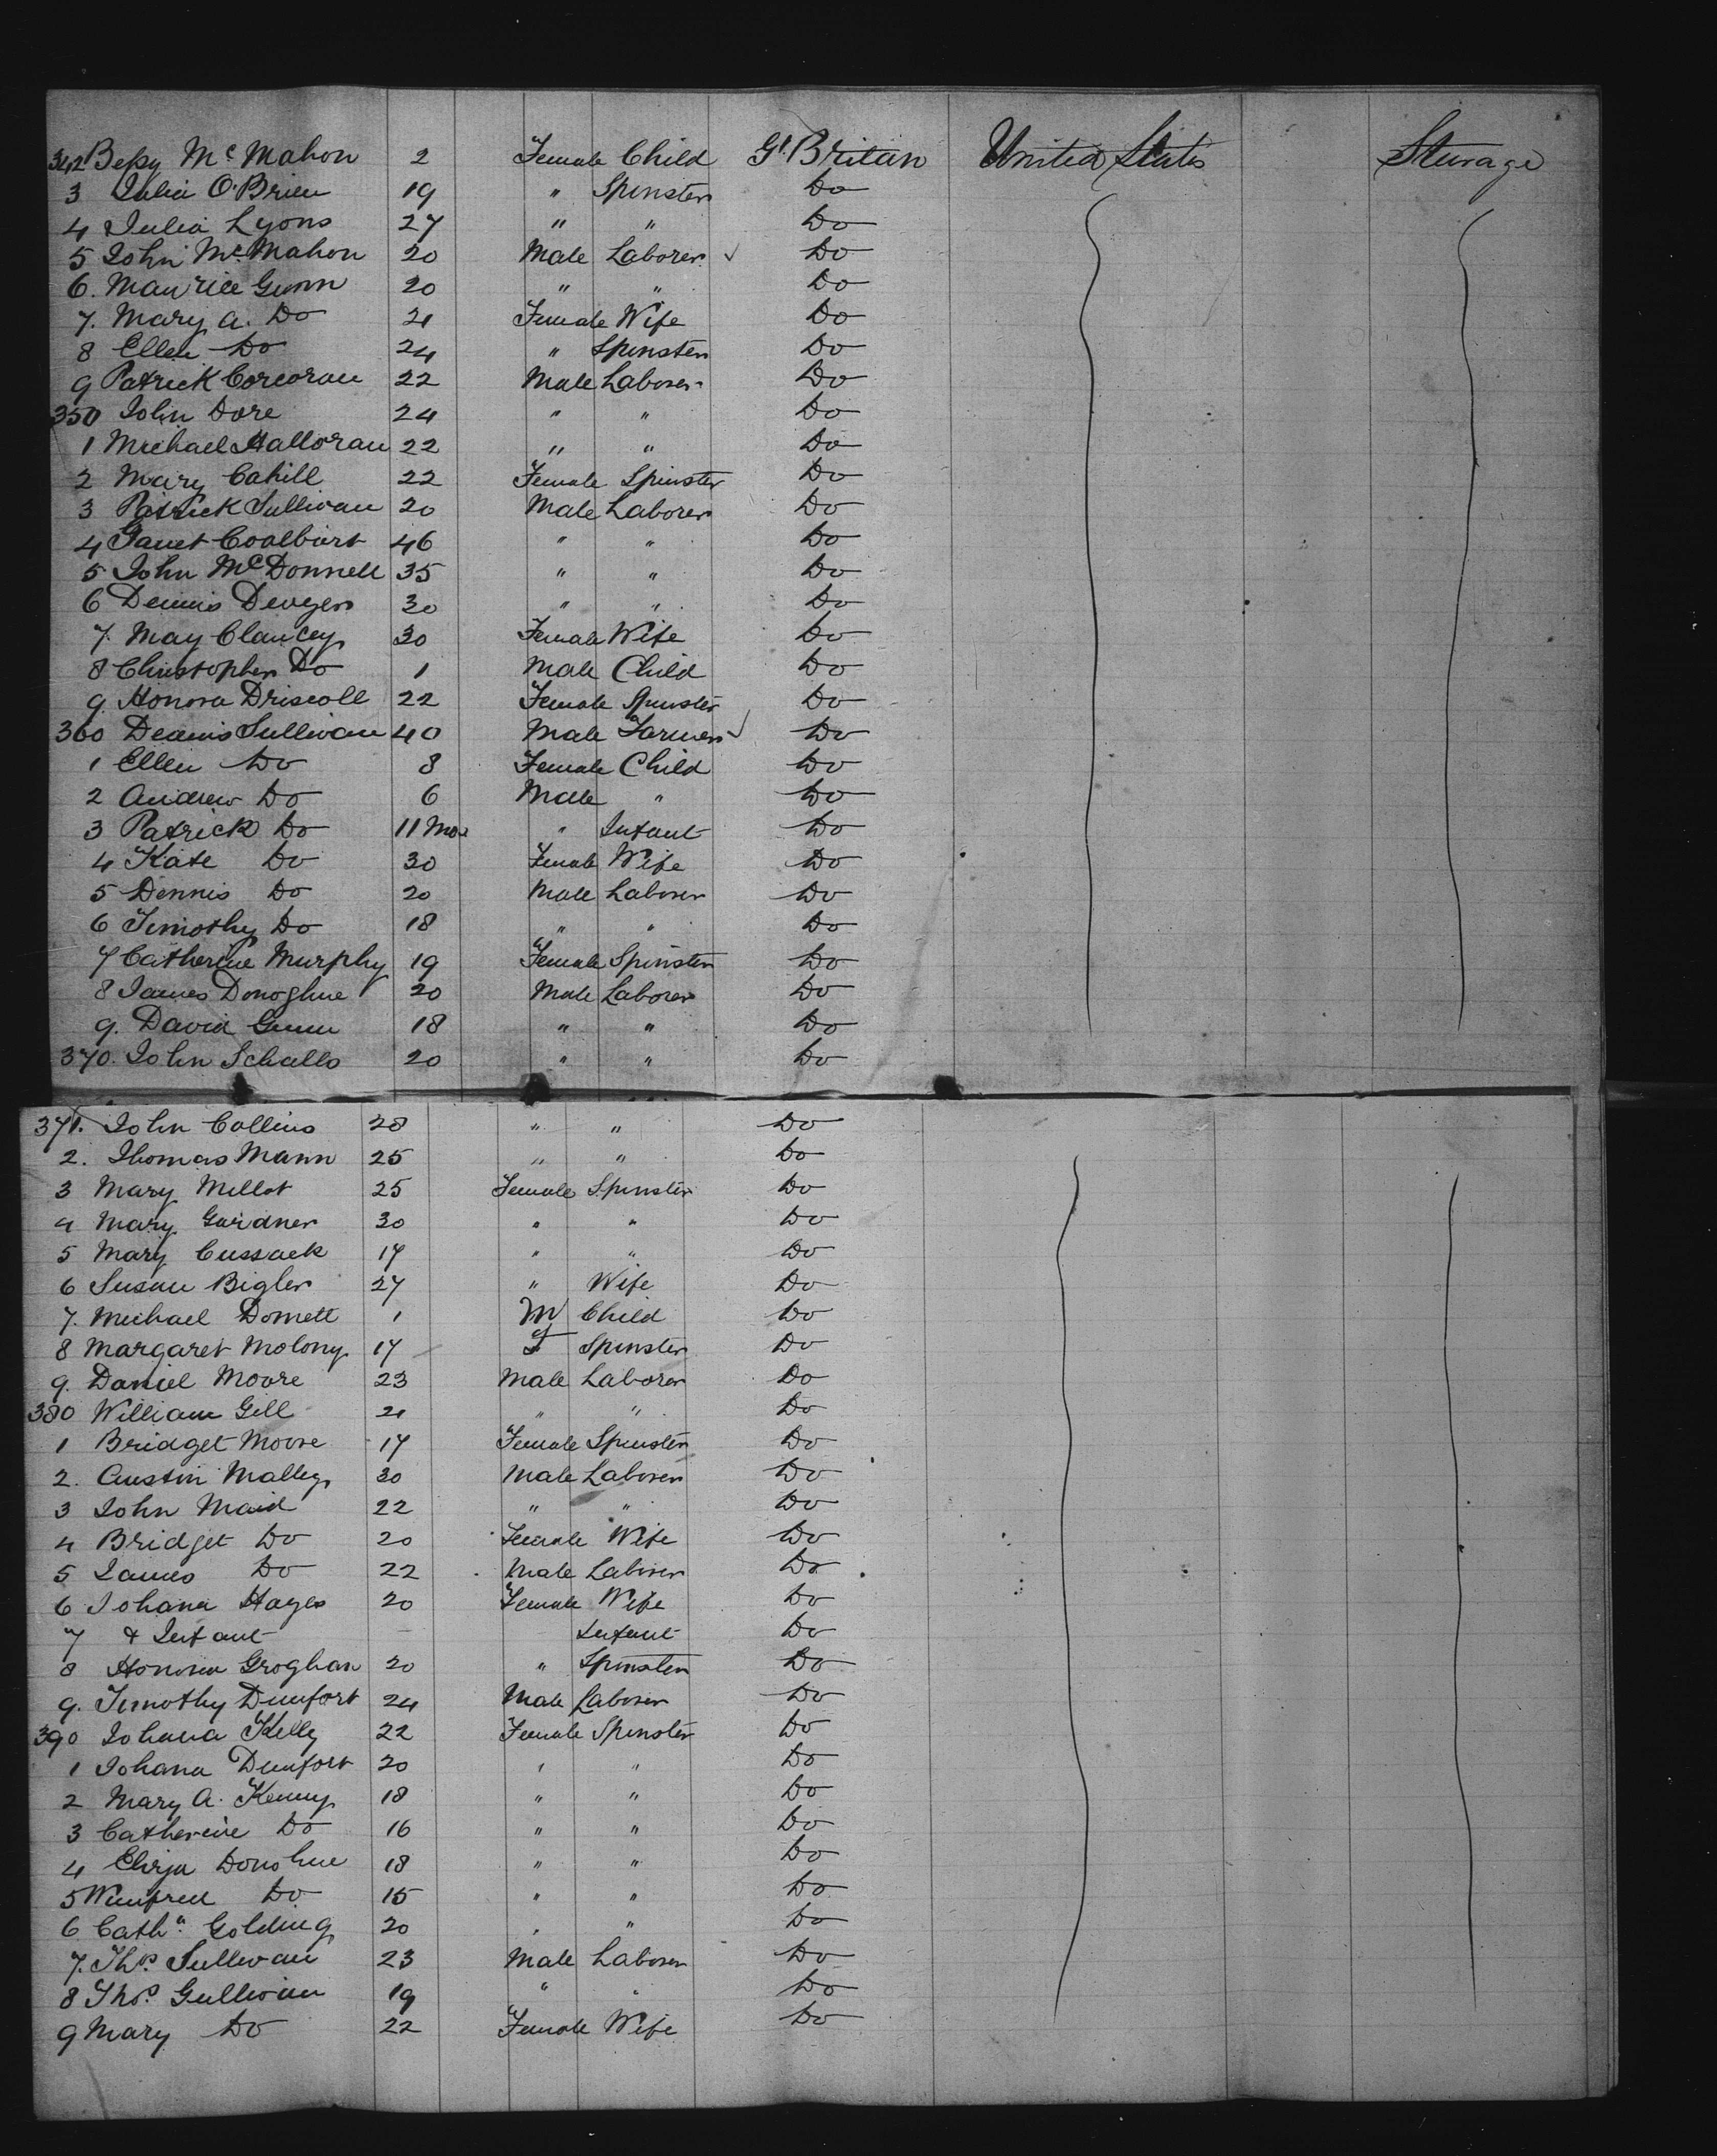 342 Bessy McMahon 2 Female Child Gt Britain United States Sterage
3 Julia O'Brien 19 " Spinster Do
4 Julia Lyons 27 " " Do
5 John McMahon 20 Male Laborer ✓ Do
6. Maurice Gunn 20 " " Do
7. Mary A. Do 21 Female Wife Do
8 Ellen Do 24 " Spinster Do
9 Patrick Corcoran 22 Male Laborer Do
350 John Dore 24 " " Do
1 Michael Halloran 22 " " Do
2 Mary Cahill 22 Female Spinster Do
3 Patrick Sullivan 20 Male Laborer Do
4 Janet Coalburt 46 " " Do
5 John McDonnell 35 " " Do
6 Dennis Dwyer 30 " " Do
7. May Clancey 30 Female Wife Do
8 Christopher Do 1 Male Child Do
9. Honora Driscoll 22 Female Spinster Do
360 Dennis Sullivan 40 Male Farmer ✓ Do
1 Ellen Do 8 Female Child Do
2 Andrew Do 6 Male " Do
3 Patrick Do 11 Mos " Infant Do
4 Kate Do 30 Female Wife Do
5 Dennis Do 20 Male Laborer Do
6 Timothy Do 18 " " Do
7 Catherine Murphy 19 Female Spinster Do
8 James Donoghue 20 Male Laborer Do
9. David Gunn 18 " " Do
370. John Schalls 20 " " Do
371. John Collins 28 " " Do
2. Thomas Mann 25 " " Do
3 Mary Mellot 25 Female Spinster Do
4 Mary Gardner 30 " " Do
5 Mary Cussack 17 " " Do
6 Susan Bigler 27 " Wife Do
7. Michael Domett 1 M Child Do
8 Margaret Molony 17 F Spinster Do
9. Daniel Moore 23 Male Laborer Do
380 William Gill 21 " " Do
1 Bridget Moore 17 Female Spinster Do
2. Austin Malley 30 Male Laborer Do
3 John Maid 22 " " Do
4 Bridget Do 20 Female Wife Do
5 James Do 22 Male Laborer Do
6 Johana Hayes 20 Female Wife Do
7 & Infant Infant Do
8 Honora Groghan 20 " Spinster Do
9. Timothy Dunfort 24 Male Laborer Do
390 Johana Kelly 22 Female Spinster Do
1 Johana Dunfort 20 " " Do
2 Mary A. Kenny 18 " " Do
3 Catherine Do 16 " " Do
4 Eliza Donohue 18 " " Do
5 Winfred Do 15 " " Do
6 Catha. Golding 20 " " Do
7. Thos. Sullivan 23 Male Laborer Do
8 Thos. Gullivan 19 " " Do
9 Mary Do 22 Female Wife Do